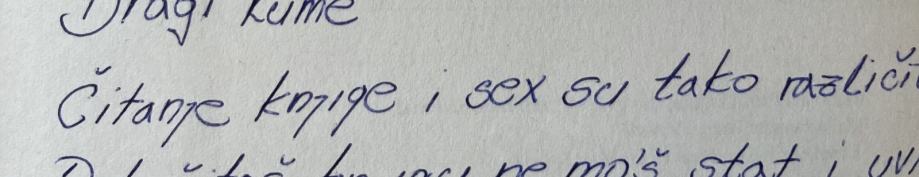 Dragi kume
Čitanje knjige i sex su tako različi
ne mo'š stat i